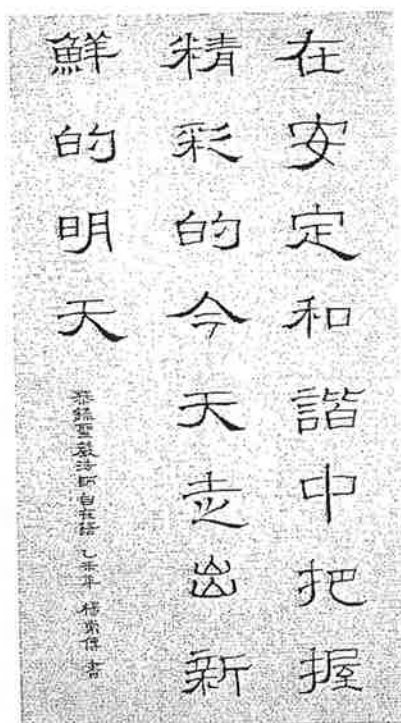 在安定和諧中把握
精彩的今天走出新
鮮的明天
恭錄聖嚴法師自在語 乙未年 楊 書